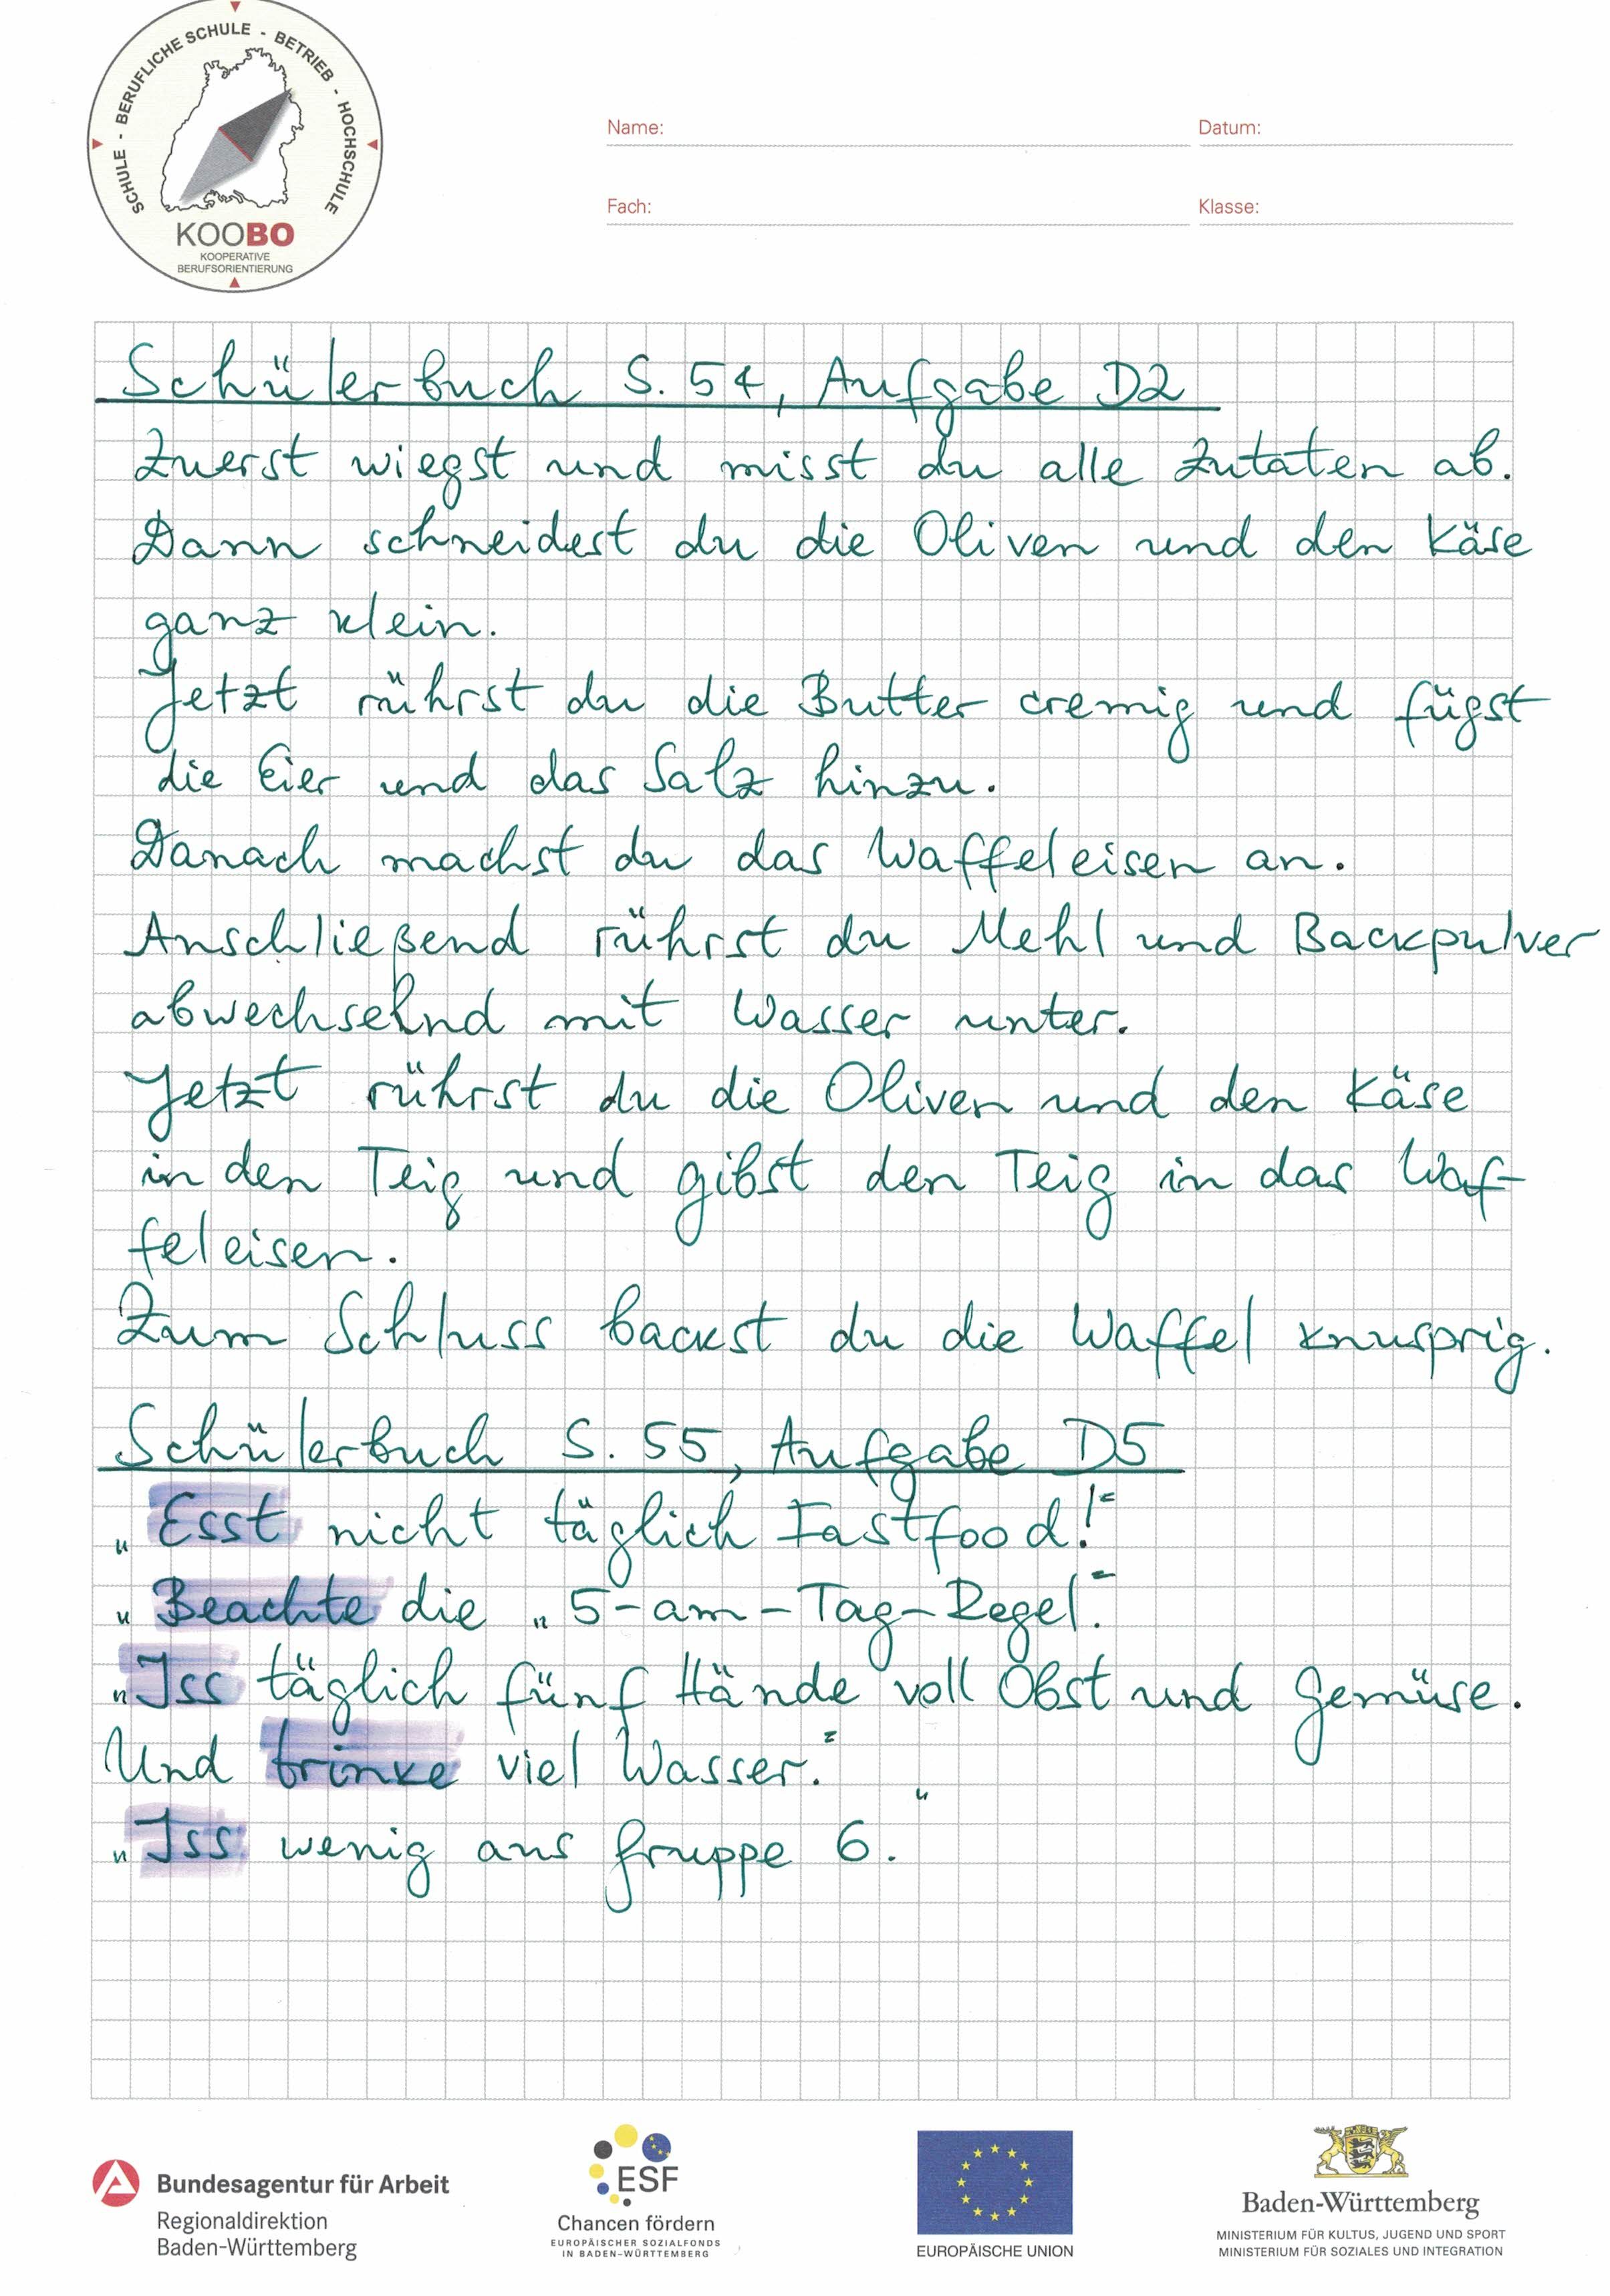 SCHULE - BERUFLICHE SCHULE - BETRIEB - HOCHSCHULE
KOOBO
KOOPERATIVE
BERUFSORIENTIERUNG
Name:
Datum:
Fach:
Klasse:
Schülerbuch S. 54, Aufgabe D2
Zuerst wiegst und misst du alle Zutaten ab.
Dann schneidest du die Oliven und den Käse
ganz klein.
Jetzt rührst du die Butter cremig und fügst
die Eier und das Salz hinzu.
Danach machst du das Waffeleisen an.
Anschließend rührst du Mehl und Backpulver
abwechselnd mit Wasser unter.
Jetzt rührst du die Oliven und den Käse
in den Teig und gibst den Teig in das Waf-
feleisen.
Zum Schluss backst du die Waffel knusprig.
Schülerbuch S. 55, Aufgabe D5
„Esst nicht täglich Fastfood!“
„Beachte die „5-am-Tag-Regel.“
„Iss täglich fünf Hände voll Obst und Gemüse.
Und trinke viel Wasser.“
„Iss wenig aus Gruppe 6.“
Bundesagentur für Arbeit
Regionaldirektion
Baden-Württemberg
ESF
Chancen fördern
EUROPÄISCHER SOZIALFONDS
IN BADEN-WÜRTTEMBERG
EUROPÄISCHE UNION
Baden-Württemberg
MINISTERIUM FÜR KULTUS, JUGEND UND SPORT
MINISTERIUM FÜR SOZIALES UND INTEGRATION